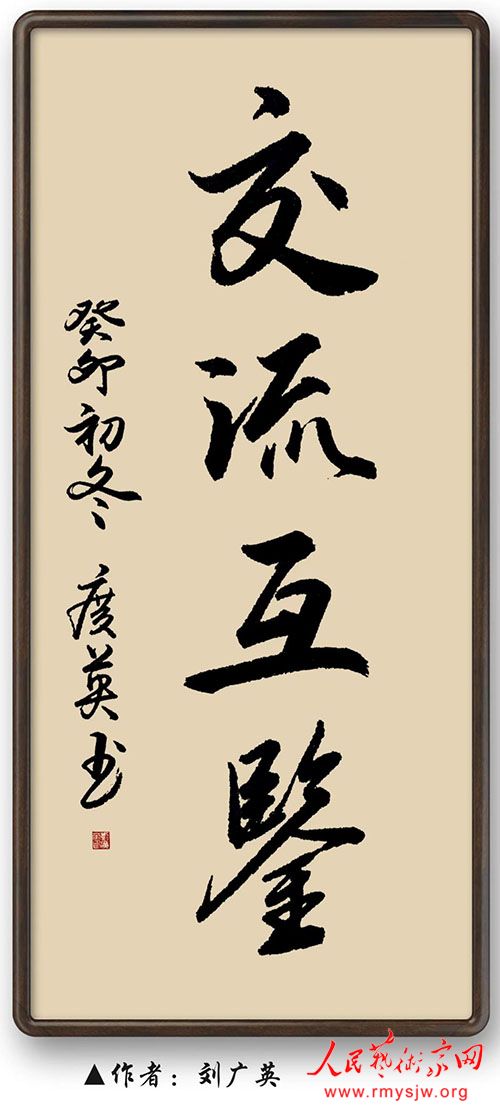 交流互鑒
癸卯初冬 廣英书
▲作者：刘广英
人民藝術家网
www.rmysjw.org